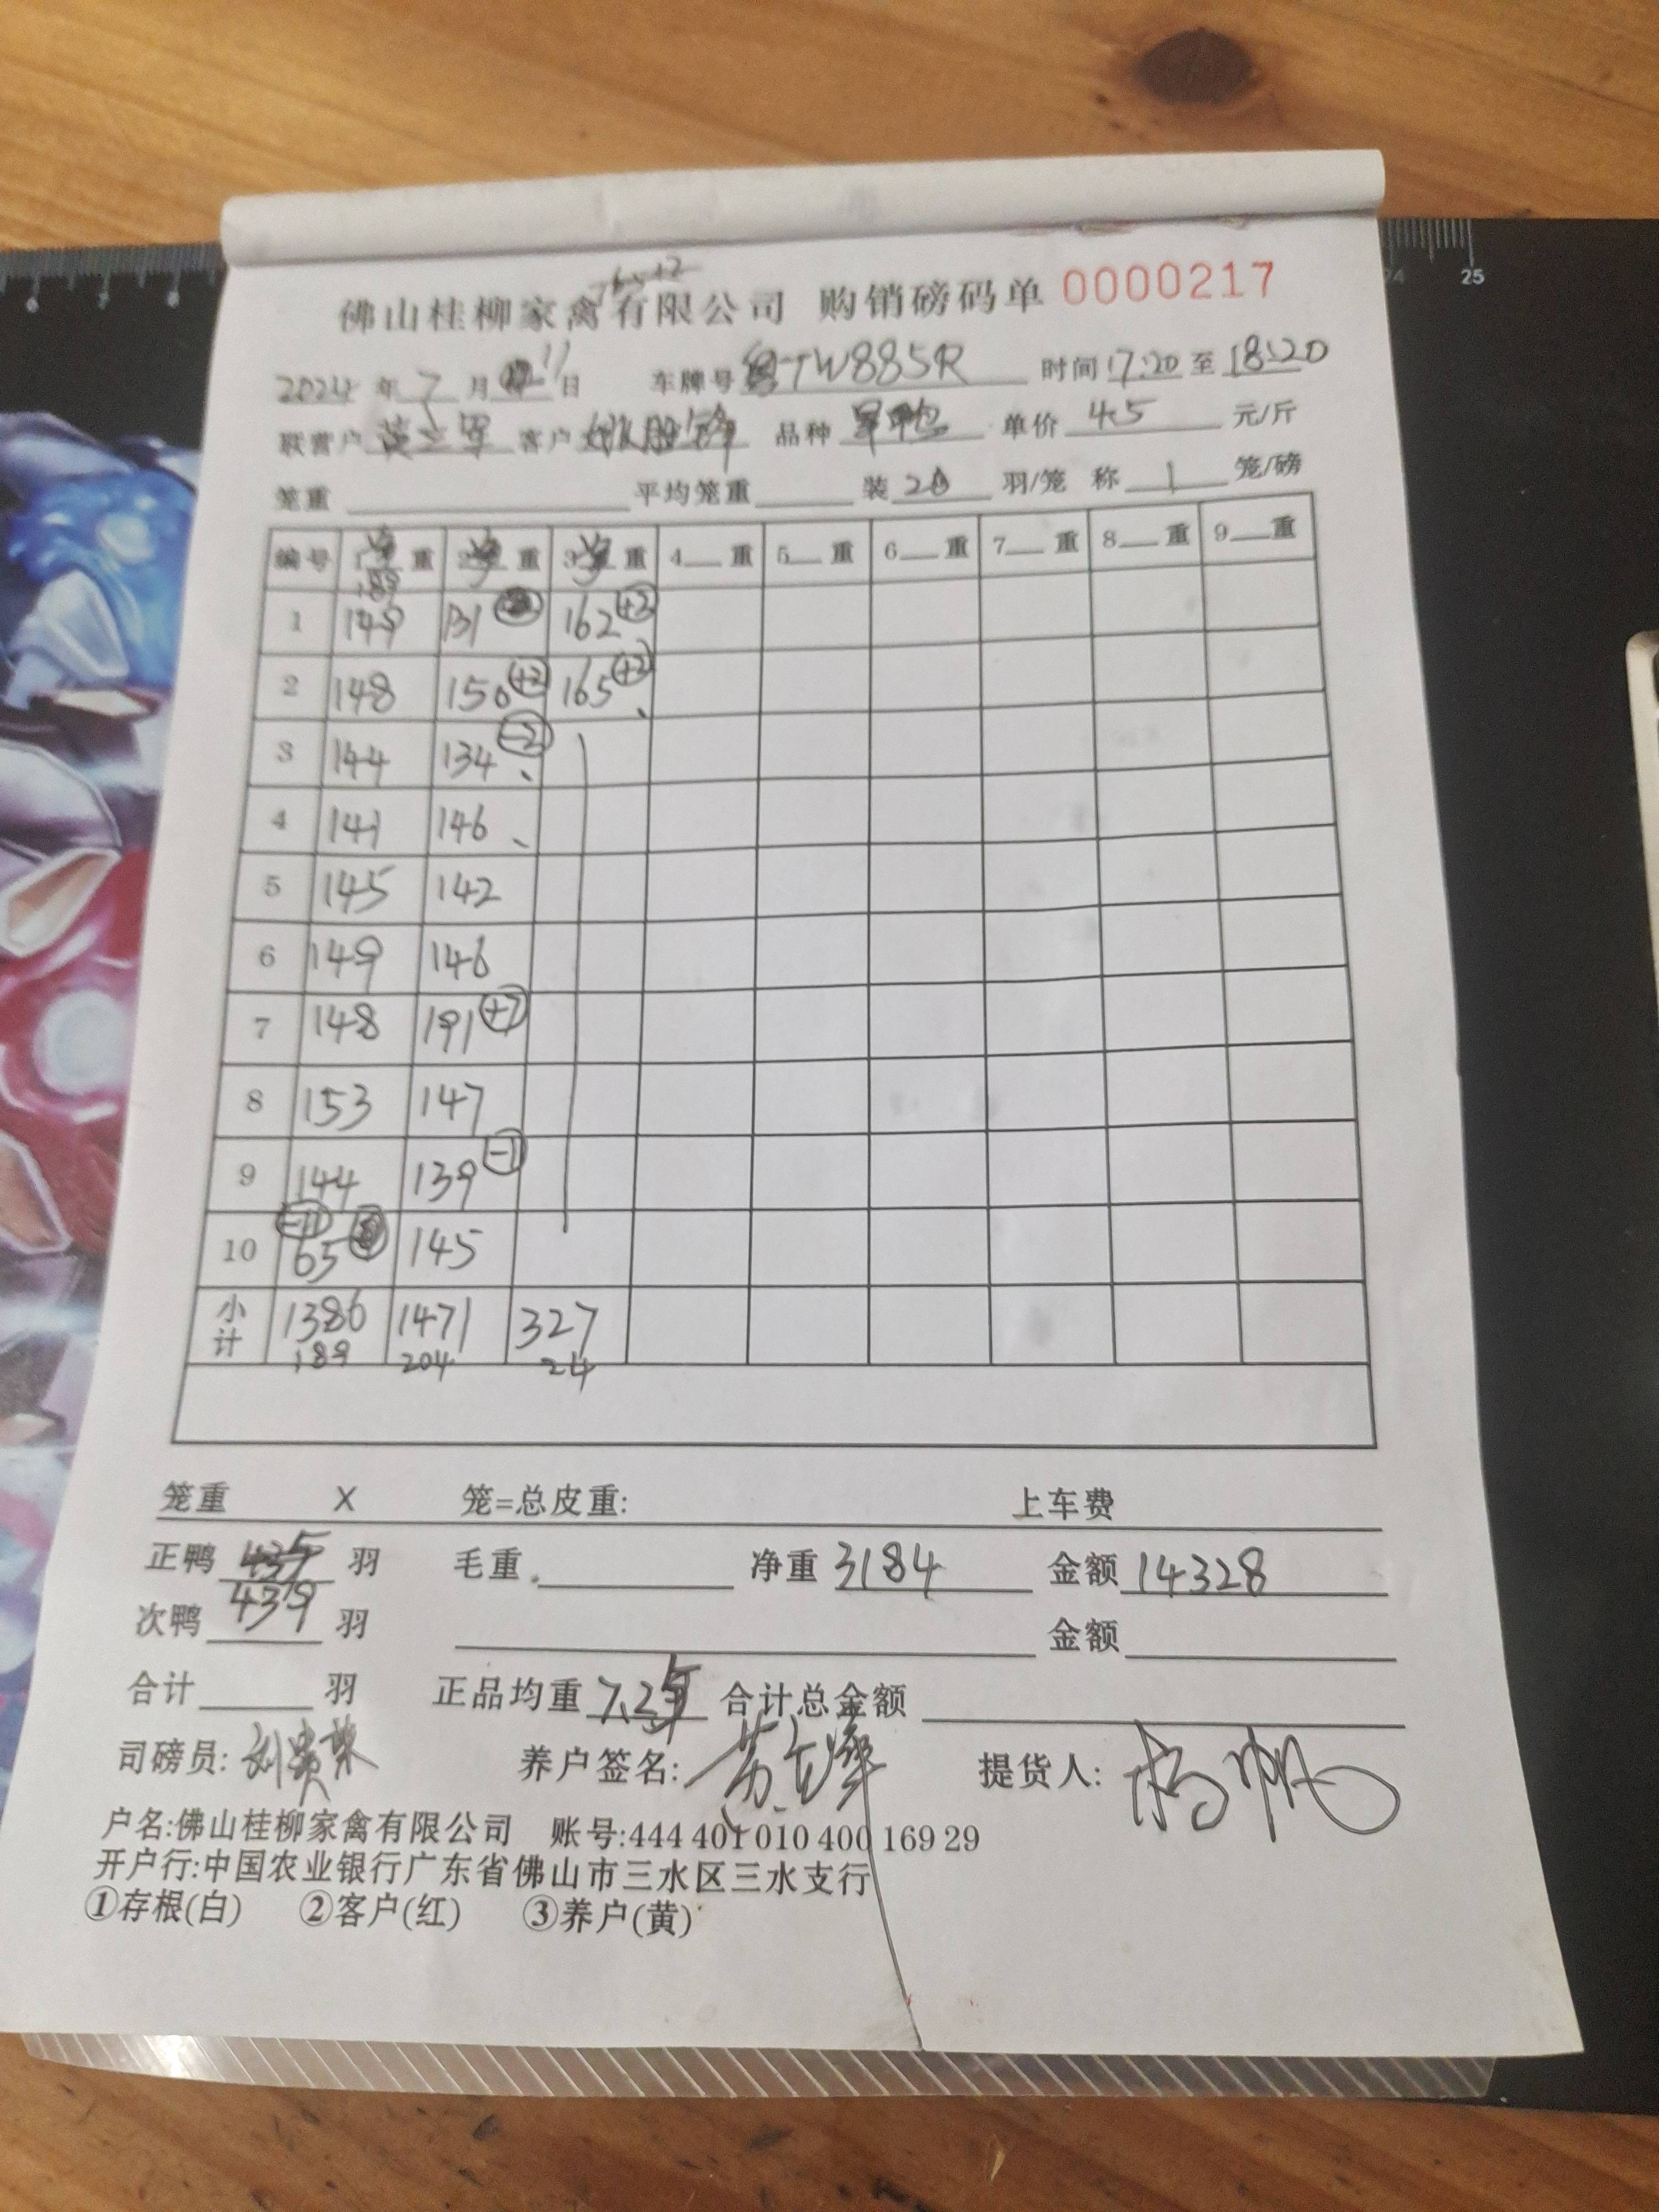 佛山桂柳家禽有限公司 购销磅码单 0000217
2024 年 7 月 11 日 车牌号 粤TW885R 时间 17:20 至 18:20
联营户 客户 姚胜锋 品种 旱鸭 单价 4.5 元/斤
笼重 平均笼重 装 20 羽/笼 称 1 笼/磅
编号 1 重 2 重 3 重 4 重 5 重 6 重 7 重 8 重 9 重
189
1 149 131 162 +2
2 148 150 +2 165 +2
3 144 134 -2
4 141 146
5 145 142
6 149 146
7 148 191 +7
8 153 147
9 144 139 -1
10 -11 65 145
小计 1386 1471 327
189 204 24
笼重 X 笼=总皮重: 上车费
正鸭 435 羽 毛重 净重 3184 金额 14328
439
次鸭 羽 金额
合计 羽 正品均重 7.25 合计总金额
司磅员: 养户签名: 提货人: 杨帆
户名:佛山桂柳家禽有限公司 账号:444 401 010 400 169 29
开户行:中国农业银行广东省佛山市三水区三水支行
①存根(白) ②客户(红) ③养户(黄)